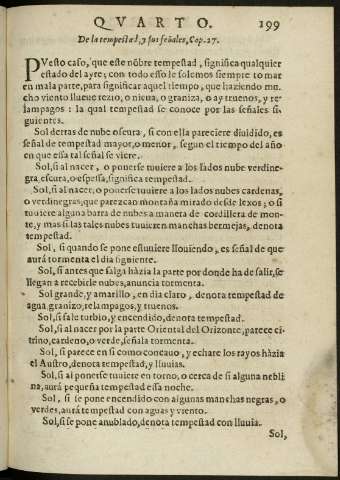 QVARTO. 199
De la tempestad, y sus señales, Cap. 27.
PVesto caso, que este nõbre tempestad, significa qualquier
estado del ayre; con todo esso le solemos siempre tomar
en mala parte, para significar aquel tiempo, que haziendo mu
cho viento llueue rezio, o nieua, o graniza, o ay truenos, y re-
lampagos: la qual tempestad se conoce por las señales si
guientes.
Sol detras de nube oscura, si con ella pareciere diuidido, es
señal de tempestad mayor, o menor, segun el tiempo del año
en que essa tal señal se viere.
Sol, si al nacer, o ponerse tuuiere a los lados nube verdine-
gra, escura, o espessa, significa tempestad.
Sol, si al nacer, o ponerse tuuiere a los lados nubes cardenas,
o verdinegras, que parezcan montaña mirado desde lexos; o si
tuuiere alguna barra de nubes a manera de cordillera de mon-
te, y mas si las tales nubes tuuieren manchas bermejas, denota
tempestad.
Sol, si quando se pone estuuiere llouiendo, es señal de que
aurá tormenta el dia siguiente.
Sol, si antes que salga hàzia la parte por donde ha de salir, se
llegan a recebirle nubes, anuncia tormenta.
Sol grande, y amarillo, en dia claro, denota tempestad de
agua, granizo, relampagos, y truenos.
Sol, si sale turbio, y encendido, denota tempestad.
Sol, si al nacer por la parte Oriental del Orizonte, parece ci-
trino, cardeno, o verde, señala tormenta.
Sol, si parece en si como concauo, y echare los rayos hàzia
el Austro, denota tempestad, y lluuias.
Sol, si al ponerse tuuiere en torno, o cerca de si alguna nebli
na, aurá pequeña tempestad essa noche.
Sol, si se pone encendido con algunas manchas negras, o
verdes, aurá tempestad con aguas y viento.
Sol, si se pone anublado, denota tempestad con lluuia.
Sol,